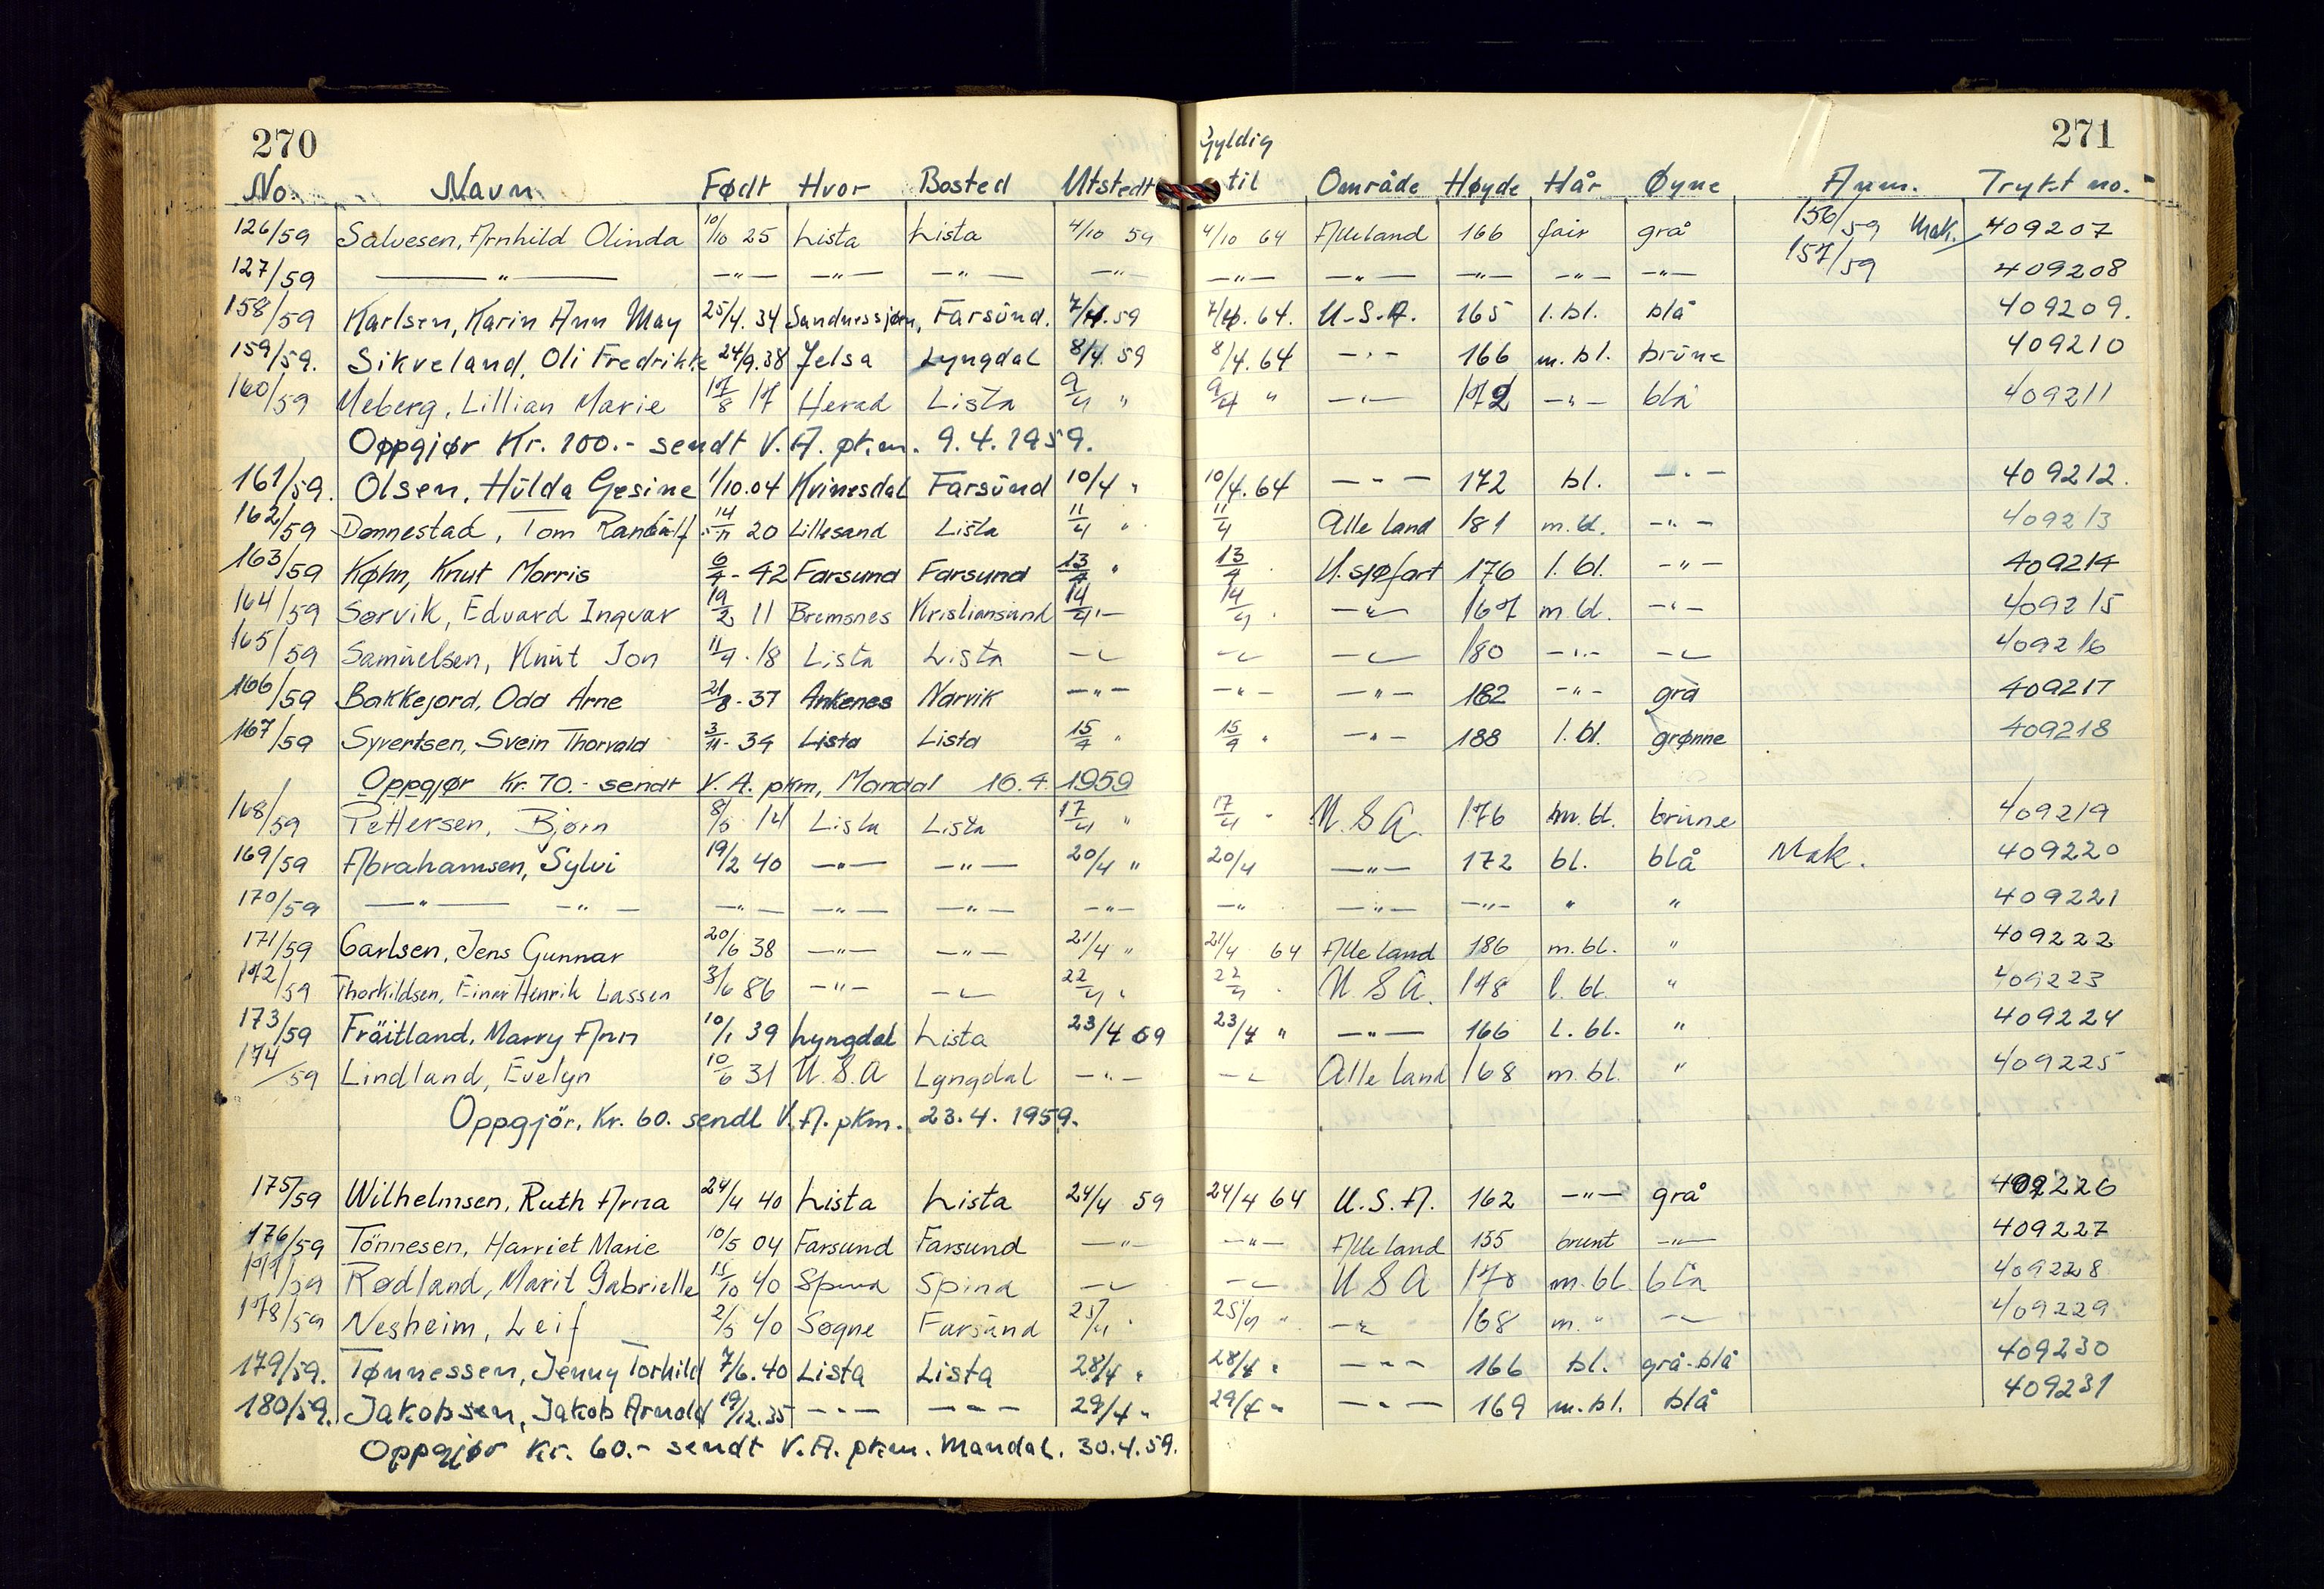 270
271
No. Navn Født Hvor Bosted Utstedt Gyldig til Område Høyde Hår Øyne Anm. Trykt no.
126/59 Salvesen, Arnhild Olinda 10/10 25 Lista Lista 4/10 59 4/10 64 Alle land 166 fair grå 156/59 Mak. 409207
127/59 —"— —"— —"— —"— —"— —"— —"— —"— —"— —"— 157/59 409208
158/59 Karlsen, Karin Ann May 25/4. 34 Sandnessjøen, Farsund. 7/4. 59 7/4. 64. U.S.A. 165 l.bl. blå 409209.
159/59. Sikveland, Oli Fredrikke 24/9.38 Jelsa Lyngdal 8/4. 59 8/4. 64 —"— 166 m.bl. brune 409210
160/59 Meberg, Lillian Marie 17/8 17 Herad Lista 9/4 " 9/4 " —"— 172 —"— blå 409211
Oppgjør Kr. 100.- sendt V.A. pkm. 9.4.1959.
161/59. Olsen, Hulda Gesine 1/10.04 Kvinesdal Farsund 10/4 " 10/4. 64 —"— 172 bl. —"— 409212.
162/59 Dønnestad, Tom 14/11 20 Lillesand Lista 11/4 " 11/4 Alle land 181 m.bl. —"— 409213
163/59 Køhn, Knut Morris 6/4 - 42 Farsund Farsund 13/4 " 13/4 U.sjøfart 176 l.bl. —"— 409214
164/59 Sørvik, Edvard Ingvar 19/2 11 Bremsnes Kristiansund 14/4 "— 14/4 " —"— 167 m bl. —"— 409215
165/59 Samuelsen, Knut Jon 11/9 . 18 Lista Lista —"— —"— —"— 180 —"— —"— 409216
166/59 Bakkejord, Odd Arne 21/8 - 37 Ankenes Narvik —"— —"— —"— 182 —"— grå 409217
167/59 Syvertsen, Svein Thorvald 3/11 - 34 Lista Lista 15/4 " 15/4 " —"— 188 l.bl. grønne 409218
Oppgjør Kr. 70.- sendt V.A. pkm, Mandal 16.4.1959
168/59 Pettersen, Bjørn 8/5 14 Lista Lista 17/4 " 17/4 " U.S.A. 176 m.bl. brune 409219
169/59 Abrahamsen, Sylvi 19/2 40 —"— —"— 20/4 " 20/4 —"— 172 bl. blå Mak. 409220
170/59 —"— —"— —"— —"— —"— —"— —"— —"— —"— " " 409221
171/59 Carlsen, Jens Gunnar 20/6 38 —"— —"— 21/4 " 21/4 64 Alle land 186 m.bl. " 409222
172/59 Thorkildsen, Einar Henrik Lassen 3/6 86 —"— —"— 22/4 " 22/4 " U.S.A. 178 l.bl. " 409223
173/59 Fröitland, Marry Ann 10/1 39 Lyngdal Lista 23/4 59 23/4 " —"— 166 l.bl. " 409224
174/59 Lindland, Evelyn 10/6 31 U.S.A Lyngdal —"— —"— Alle land 168 m.bl. " 409225
Oppgjör, Kr. 60. sendt V.A. pkm. 23.4.1959.
175/59 Wilhelmsen, Ruth Arna 24/4 40 Lista Lista 24/4 59 24/4 64 U.S.A. 162 —"— grå 409226
176/59 Tönnesen, Harriet Marie 10/5 04 Farsund Farsund —"— —"— Alle land 155 brunt —"— 409227
177/59 Rødland, Marit Gabrielle 15/10 40 Spind Spind —"— —"— U S A 170 m.bl. blå 409228
178/59 Nesheim, Leif 2/5 40 Søgne Farsund 25/4 " 25/4 " —"— 168 m. " —"— 409229
179/59. Tønnessen, Jenny Torhild 7/6. 40 Lista Lista 28/4 " 28/4 " —"— 166 bl. grå-blå 409230
180/59. Jakobsen, Jakob Arnold 19/12.35 —"— —"— 29/4 " 29/4 " —"— 169 m.bl. blå 409231
Oppgjør Kr. 60.- sendt V.A. pkm. Mandal. 30.4.59.